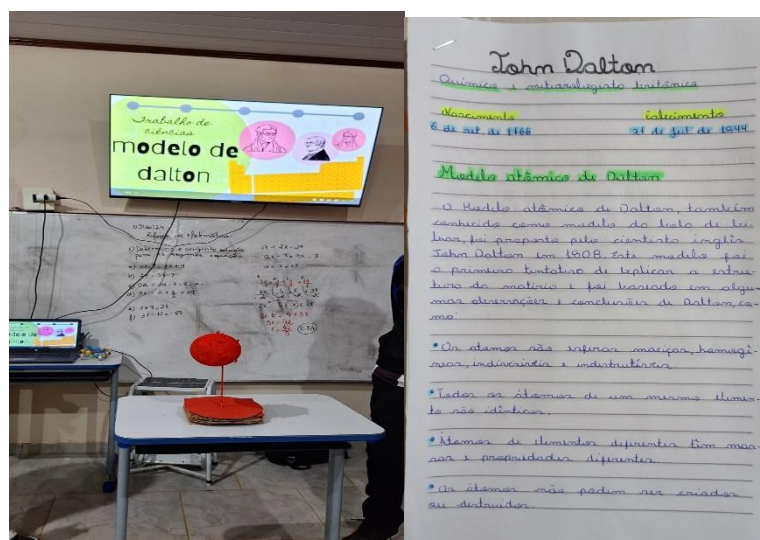 Trabalho de
ciências
modelo de
dalton
John Dalton
Químico e meteorologista britânico
Nascimento
falecimento
6 de set. de 1766
27 de jul de 1844
Modelo atômico de Dalton
O Modelo atômico de Dalton, também
conhecido como modelo da bola de bi-
lhar, foi proposto pelo cientista inglês
John Dalton em 1808. Este modelo foi
a primeira tentativa de explicar a estru-
tura da matéria e foi baseado em algu-
mas observações e conclusões de Dalton, co-
mo:
• Os átomos são esferas maciças, homogê-
neas, indivisíveis e indestrutíveis
• Todos os átomos de um mesmo elemen-
to são idênticos.
• Átomos de elementos diferentes têm mas-
sas e propriedades diferentes
• Os átomos não podem ser criados
ou destruídos